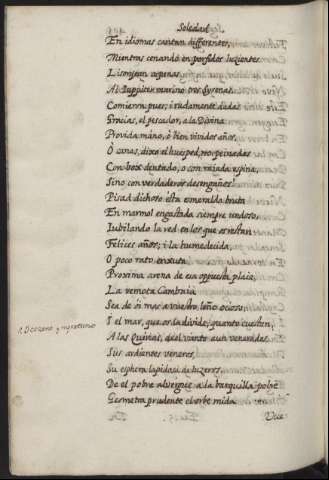 Soledad
En idiomas cantan differentes,
Mientras cenando en porfidos luzientes
Lisonjean apenas
Al Iuppiter marino tres Syrenas.
Comieron pues; i rudamente dadas
Gracias, el pescador, a la Divina
Provida mano, ô bien vividos años,
Ô canas, dixo el huesped, no peinadas
Con boix dentado, o con raiada espina,
Sino con verdaderos desengaños,
Pisad dichoso esta esmeralda bruta
En marmol engastada siempre undoso,
Iubilando la red en los que os restan
Felices años; i la humedecida,
O poco rato enxuta
Proxima arena de esa oppuesta plaia,
La remota Cambaia
Sea de ôi mas a vuestro leño ocioso,
I el mar, que os la divide, quanto cuestan
A las Quinas, del viento aun veneradas
Sus ardientes veneros,
Su esphera lapidosa de luzeros.
De el pobre albergue a la barquilla pobre
Geometra prudente el orbe mida